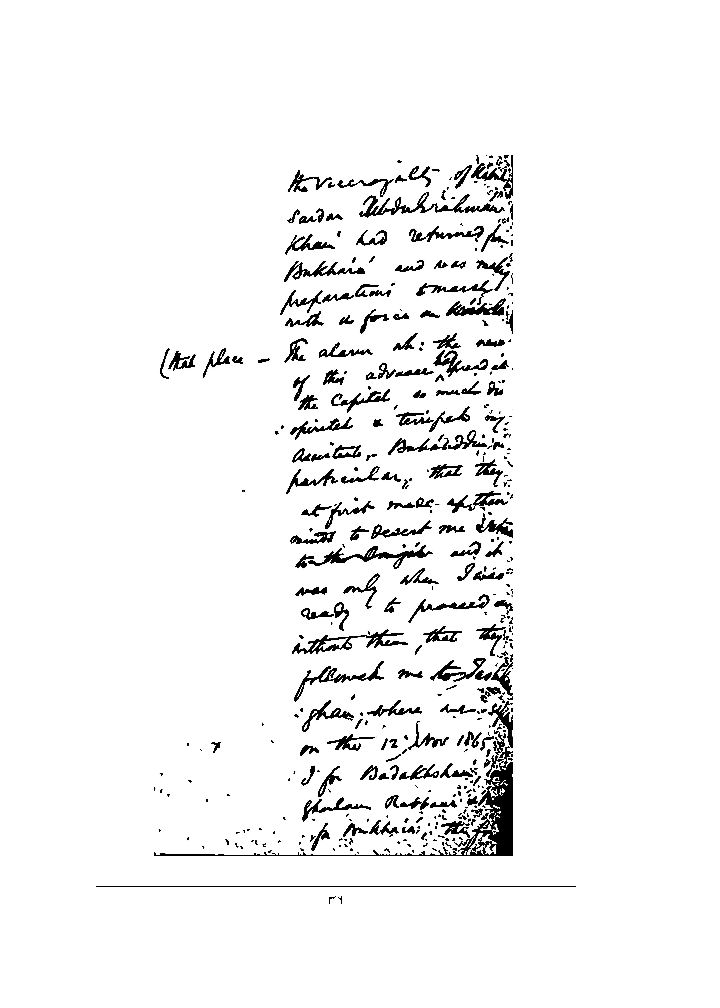 the Viceroyalty of Kabul
Sardar Abdulrahman
Khan had returned fm
Bukhárá and was makg
preparations to march
with a force on
(that place – The alarm wh: the news
of this advance had spread in
the Capital so much dis
: spirited & terrified my
Assistants,
particular, that they
at first made up their
minds to desert me
to the and it
was only when I was
ready to proceed on
without them, that they
followed me to Tash
: ghán; where we
on the 12 Nov 1865,
I for Badakhshan,
Ghulam Rabbani
for Bukhárá, the